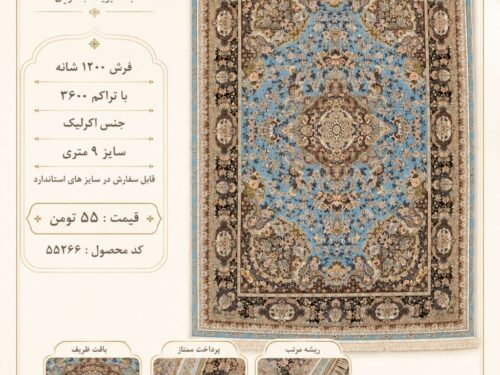 فرش ۱۲۰۰ شانه
با تراکم ۳۶۰۰
جنس اکرلیک
سایز ۹ متری
قابل سفارش در سایز های استاندارد
قیمت : ۵۵ تومن
کد محصول : ۵۵۲۶۶
ریشه مرتب
پرداخت ممتاز
بافت ظریف